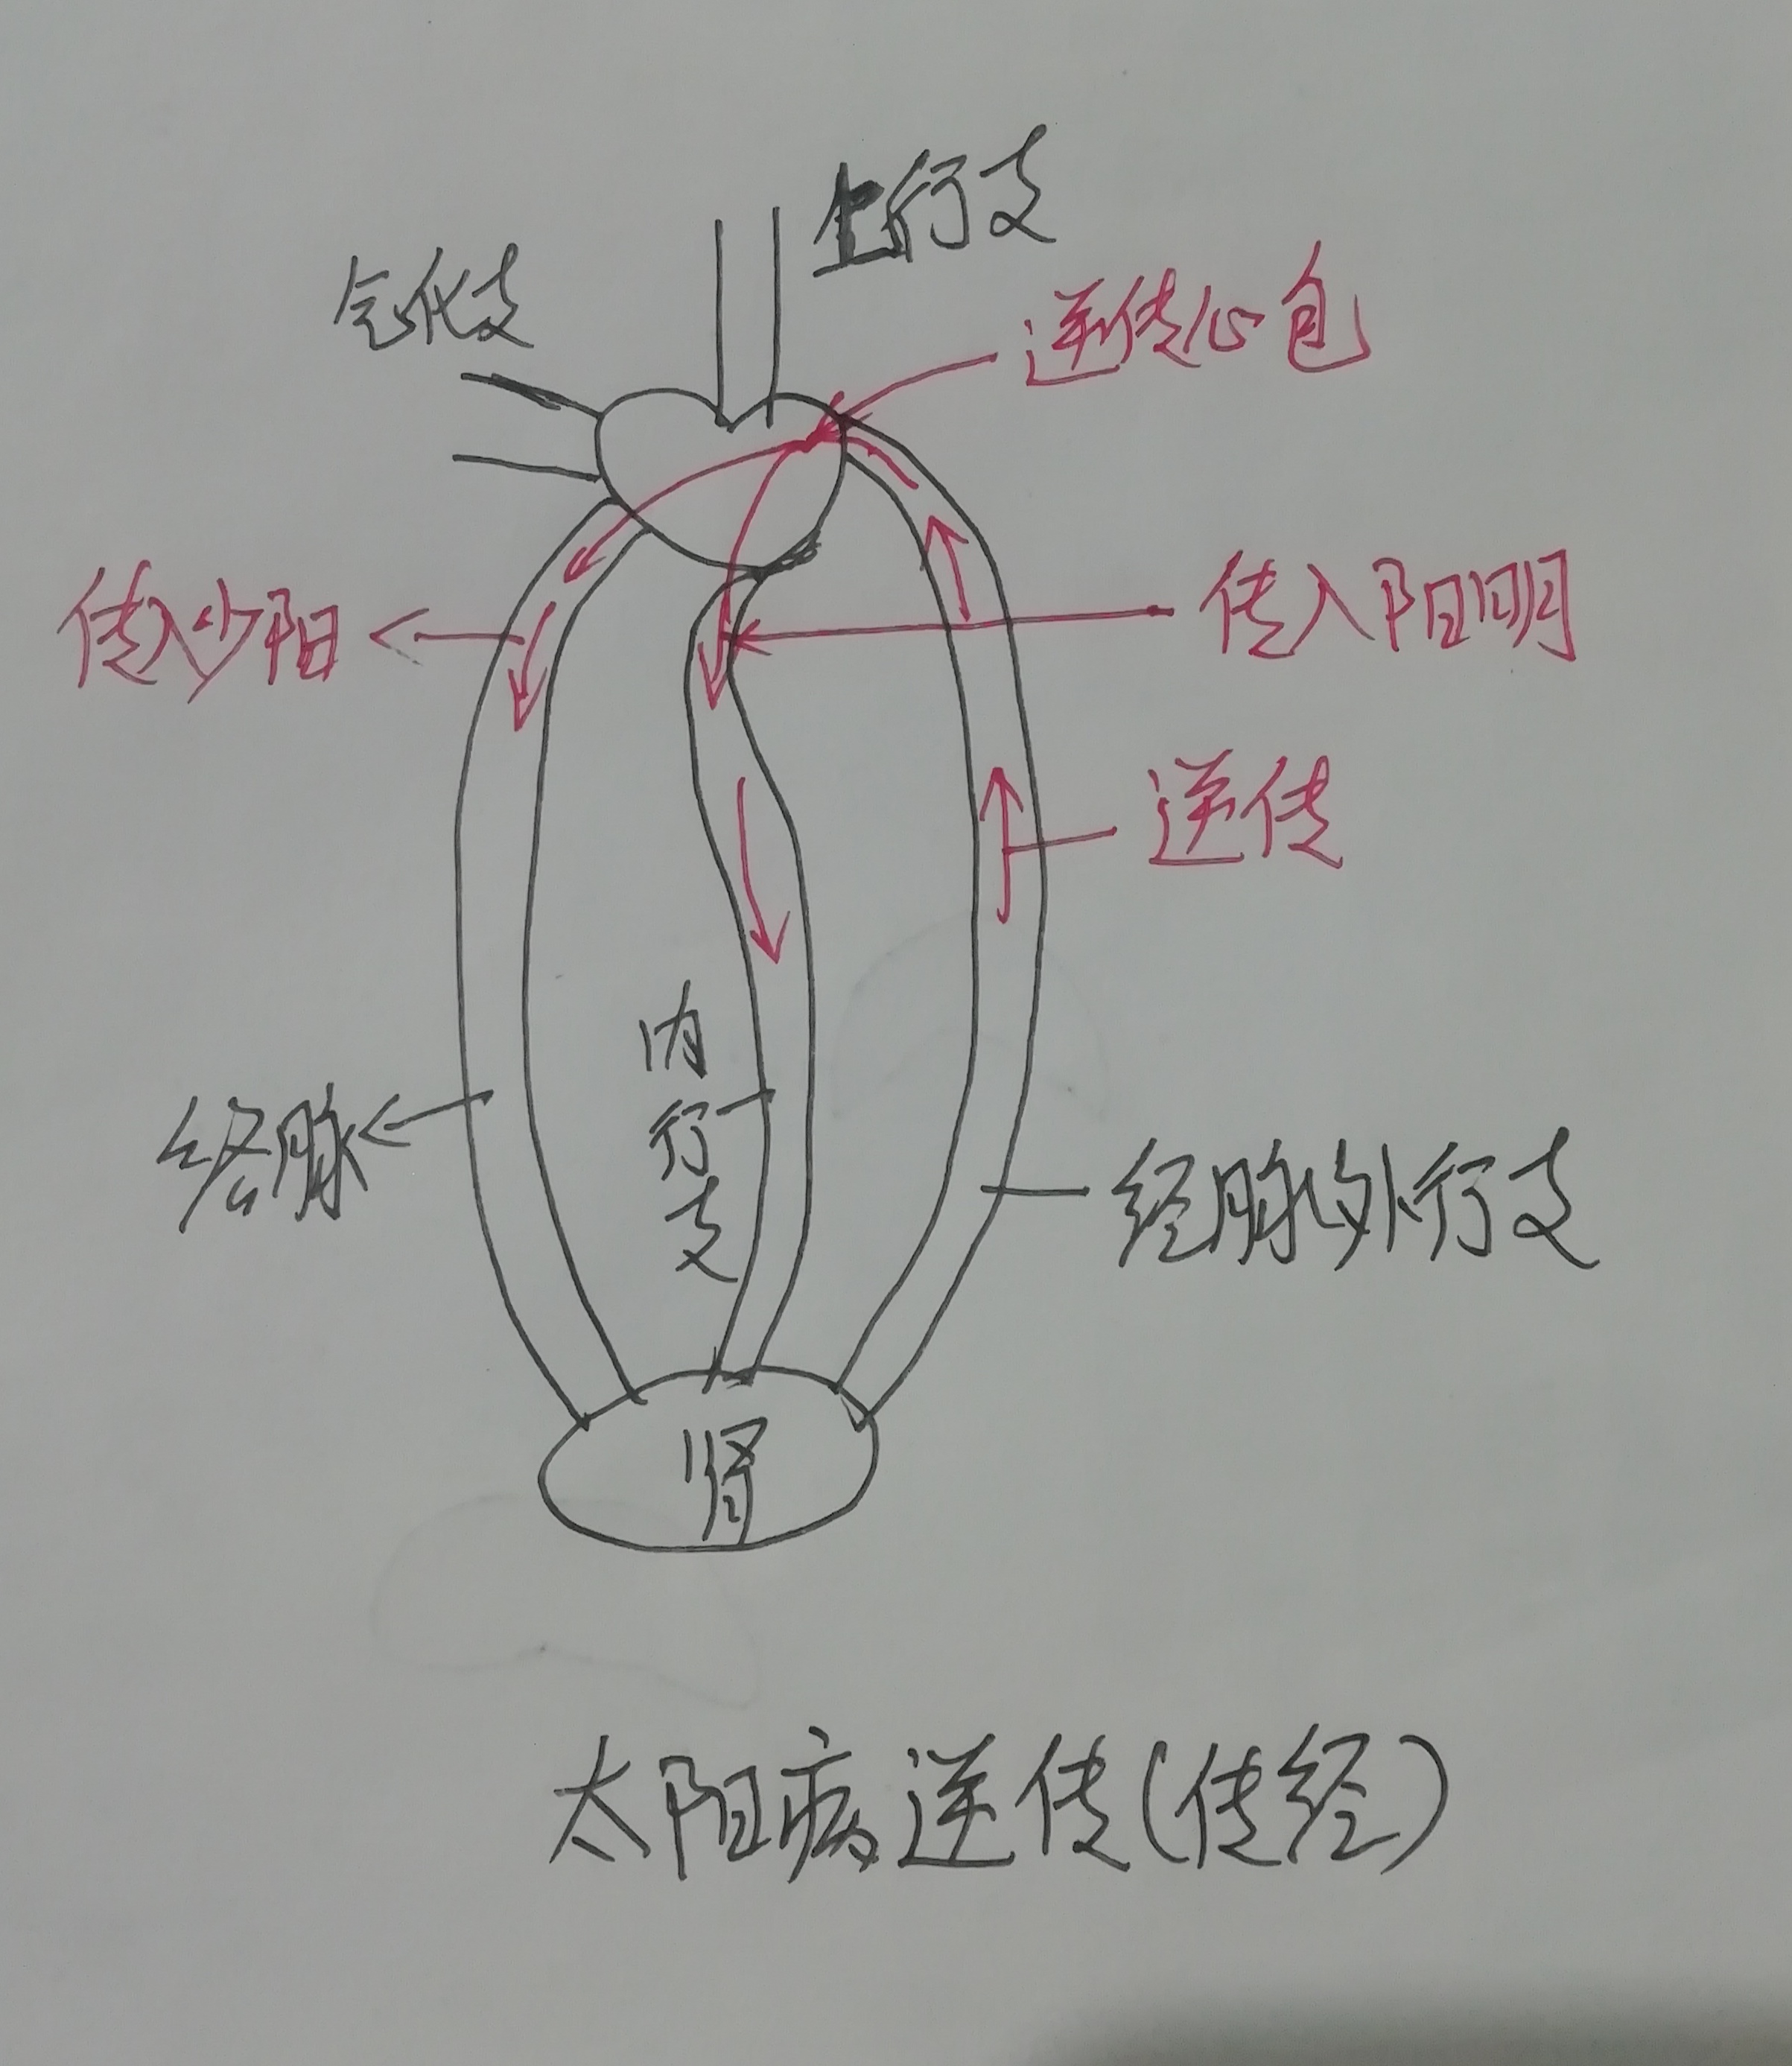 上行支
气化支
逆传心包
传入少阳
传入阳明
逆传
内行支
络脉
经脉外行支
肾
太阳病逆传(传经)